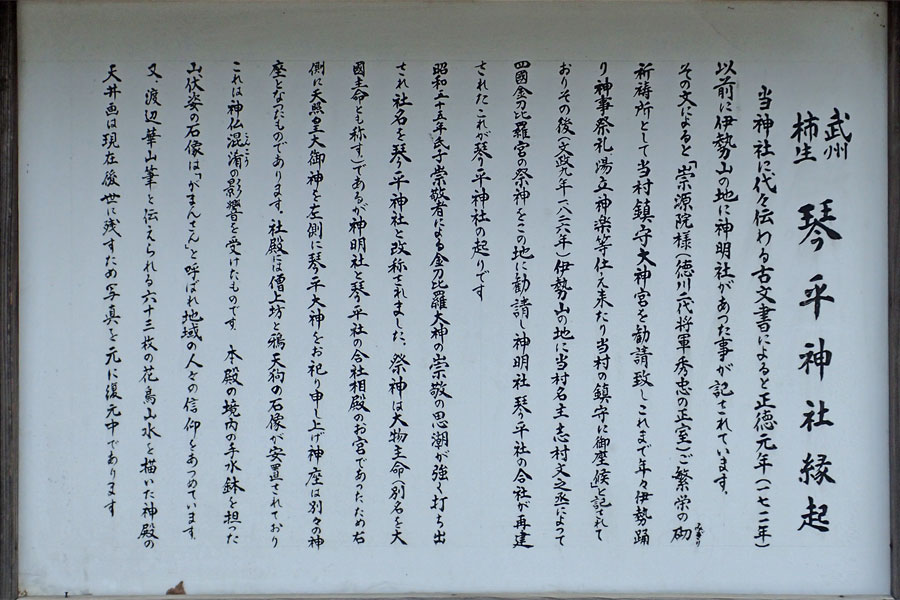 武州
柿生
琴平神社縁起
当神社に代々伝わる古文書によると正徳元年(一七一一年)
以前に伊勢山の地に神明社があった事が記されています。
その文によると「崇源院様(徳川二代将軍秀忠の正室)ご繁栄の砌
みぎり
祈祷所として当村鎮守大神宮を勧請致しこれまで年々伊勢踊
り神事祭礼湯立神楽等仕え来たり当村の鎮守に御座候」と記されて
おりその後(文政九年一八二六年)伊勢山の地に当村名主志村文之丞によって
四國金刀比羅宮の祭神をこの地に勧請し神明社 琴平社の合社が再建
されたこれが琴平神社の起りです
昭和二十五年氏子崇敬者による金刀比羅大神の崇敬の思潮が強く打ち出
され社名を琴平神社と改称されました。祭神は大物主命(別名を大
國主命とも称す)であるが神明社と琴平社の合社相殿のお宮であったため右
側に天照皇大御神を左側に琴平大神をお祀り申し上げ神座は別々の神
座となったものであります。社殿には僧上坊と鴉天狗の石像が安置されており
これは神仏混淆の影響を受けたものです。本殿の境内の手水鉢を担った
こんこう
山伏姿の石像は「がまんさん」と呼ばれ地域の人々の信仰をあつめています。
又、渡辺華山筆と伝えられる六十三枚の花鳥山水を描いた神殿の
天井画は現在後世に残すため写真を元に復元中であります